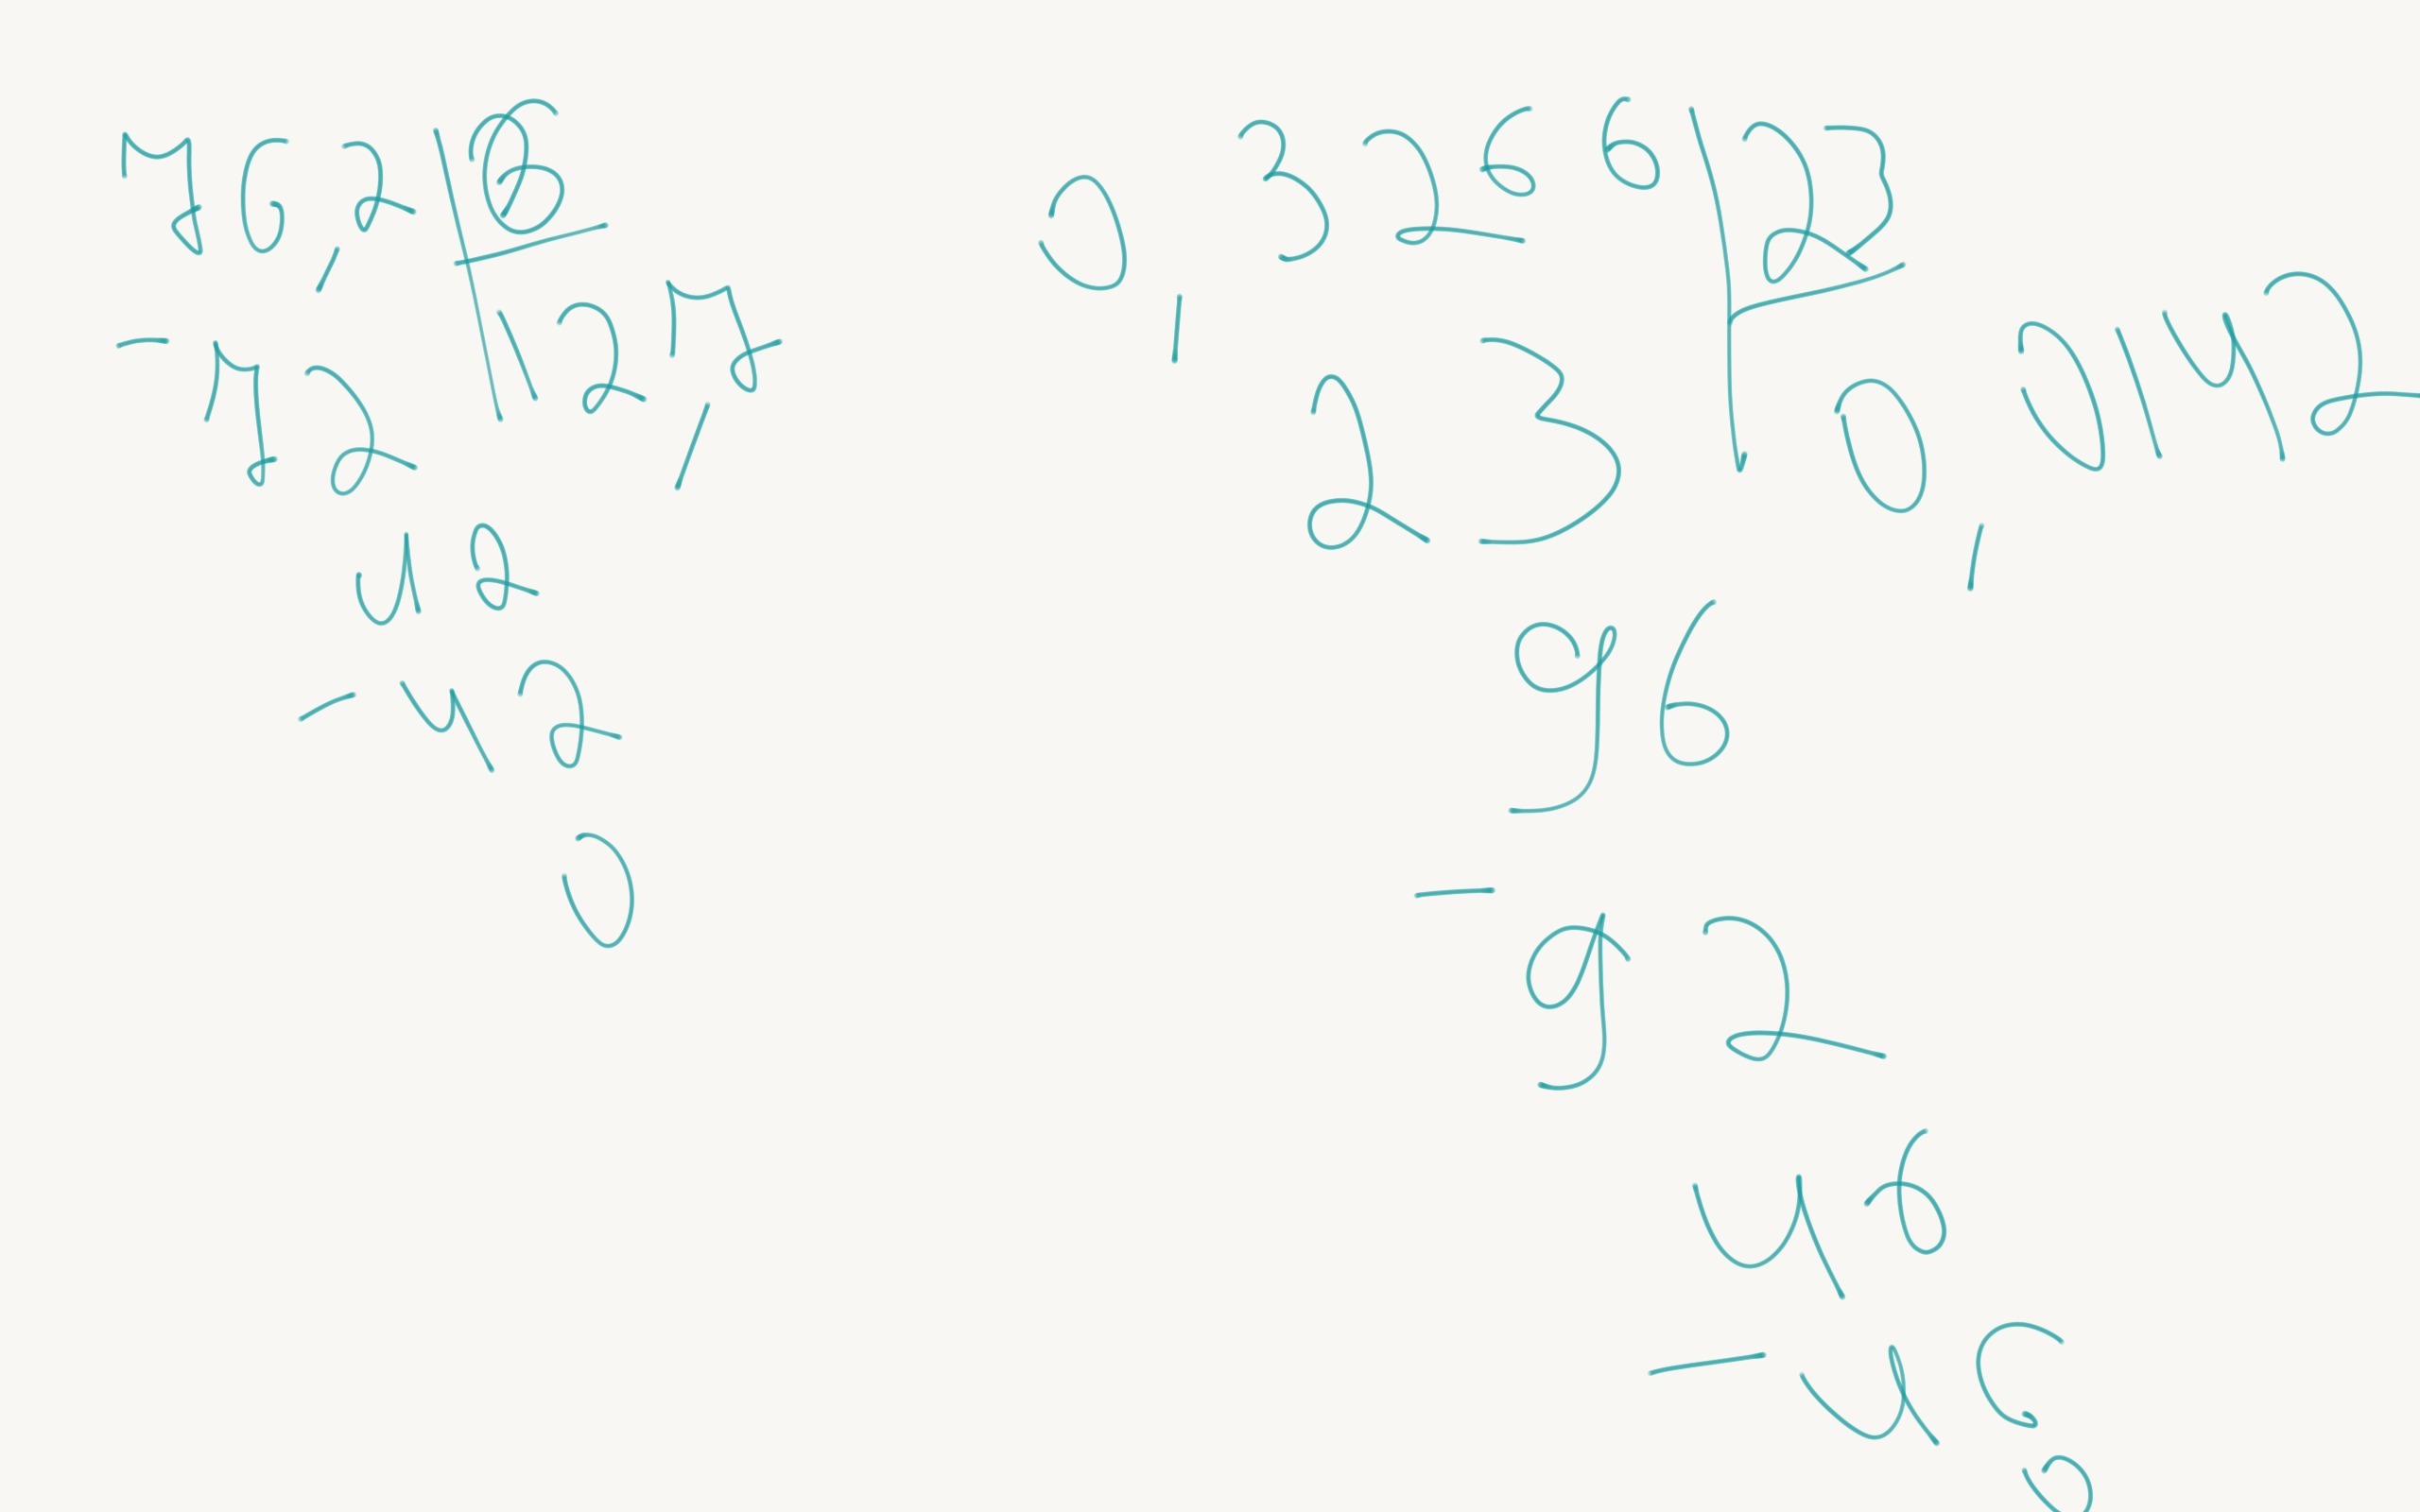 76,2 6
12,7
- 72
42
- 42
0
0,3266 23
0,0142
23
96
- 92
46
- 46
0